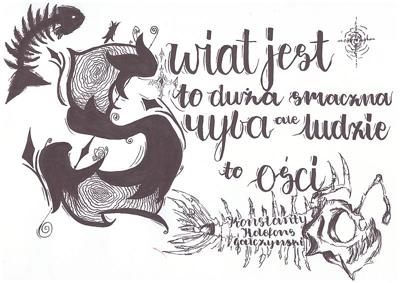 Świat jest
to duża smaczna
ryba ale ludzie
to ości
Konstanty
Ildefons
Gałczyński